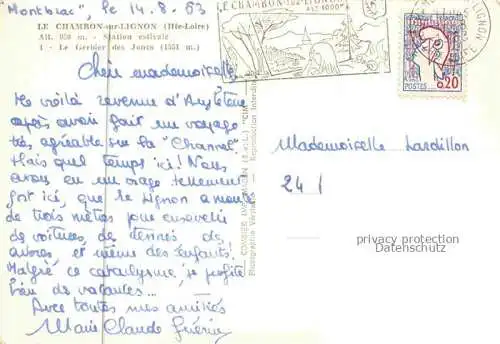 Montbrac", le 14.8.63
LE CHAMBON-sur-LIGNON (Hte-Loire)
Alt. 960 m. - Station estivale
1 - Le Gerbier des Joncs (1551 m.)
LE CHAMBON-sur-LIGNON
ALT. 1000m
0,20
POSTES
Chère mademoiselle,
Me voilà revenue d'Angleterre
après avoir fait un voyage
très agréable sur la "Channel".
Mais quel temps ici! Nous
avons eu un orage tellement
fort ici, que le Lignon a monté
de trois mètres pour ensevelir
de voitures, de tennes, des
arbres et même des enfants!
Malgré ce cataclysme, je profite
bien de vacances...
Avec toutes mes amitiés
Marie Claude Guérin
COMBIER IMP. MACON (S.-et-L.) "CIM"
Photographie Véritable - Reproduction Interdite
Mademoiselle Lardillon
24 /
privacy protection
Datenschutz